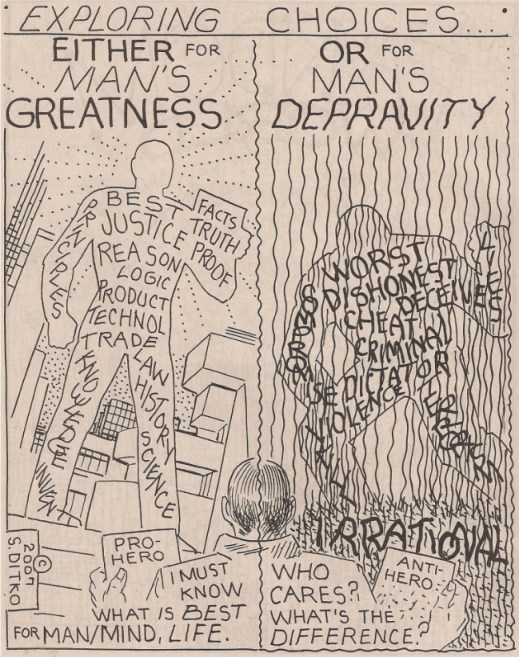 EXPLORING CHOICES...
EITHER FOR
MAN'S
GREATNESS
BEST
PRINCIPLES
JUSTICE
FACTS
TRUTH
PROOF
REASON
LOGIC
PRODUCT
TECHNOL
TRADE
KNOWLEDGE
LAW
HISTORY
SCIENCE
INVENT
PRO-
HERO
I MUST
KNOW
WHAT IS BEST
FOR MAN/MIND, LIFE.
2007
©
S. DITKO
OR FOR
MAN'S
DEPRAVITY
WORST
LIES
DISHONEST
DECEIVES
CHEAT
CRIMINAL
COMPROMISE
DICTATOR
VIOLENCE
KILL
IRRATIONAL
ANTI-
HERO
WHO
CARES?
WHAT'S THE
DIFFERENCE?